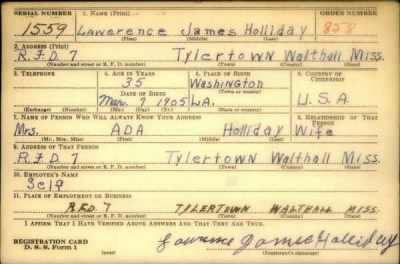 SERIAL NUMBER 1. NAME (Print) ORDER NUMBER
1559 Lawerence James Holliday 858
(First) (Middle) (Last)
2. ADDRESS (Print)
R.F.D. 7 Tylertown Walthall Miss.
(Number and street or R. F. D. number) (Town) (County) (State)
3. TELEPHONE 4. AGE IN YEARS 5. PLACE OF BIRTH 6. COUNTRY OF CITIZENSHIP
35 Washington
DATE OF BIRTH (Town or county)
Mar. 9 1905 LA. U.S.A
(Exchange) (Number) (Mo.) (Day) (Yr.) (State or country)
7. NAME OF PERSON WHO WILL ALWAYS KNOW YOUR ADDRESS 8. RELATIONSHIP OF THAT PERSON
Mrs. ADA Holliday Wife
(Mr., Mrs., Miss) (First) (Middle) (Last)
9. ADDRESS OF THAT PERSON
R.F.D 7 Tylertown Walthall Miss.
(Number and street or R. F. D. number) (Town) (County) (State)
10. EMPLOYER'S NAME
Self
11. PLACE OF EMPLOYMENT OR BUSINESS
R.F.D. 7 TYLERTOWN WALTHALL MISS.
(Number and street or R. F. D. number) (Town) (County) (State)
I AFFIRM THAT I HAVE VERIFIED ABOVE ANSWERS AND THAT THEY ARE TRUE.
REGISTRATION CARD
D. S. S. Form 1 Lawrence James Holliday
(Registrant's signature)